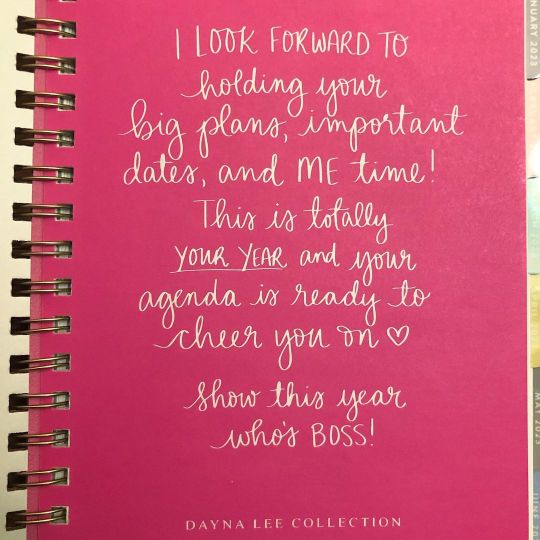 I LOOK FORWARD TO
holding your
big plans, important
dates, and ME time!
This is totally
YOUR YEAR and your
agenda is ready to
cheer you on ♡
show this year
who's BOSS!
DAYNA LEE COLLECTION
NUARY 2023
MAY 2023